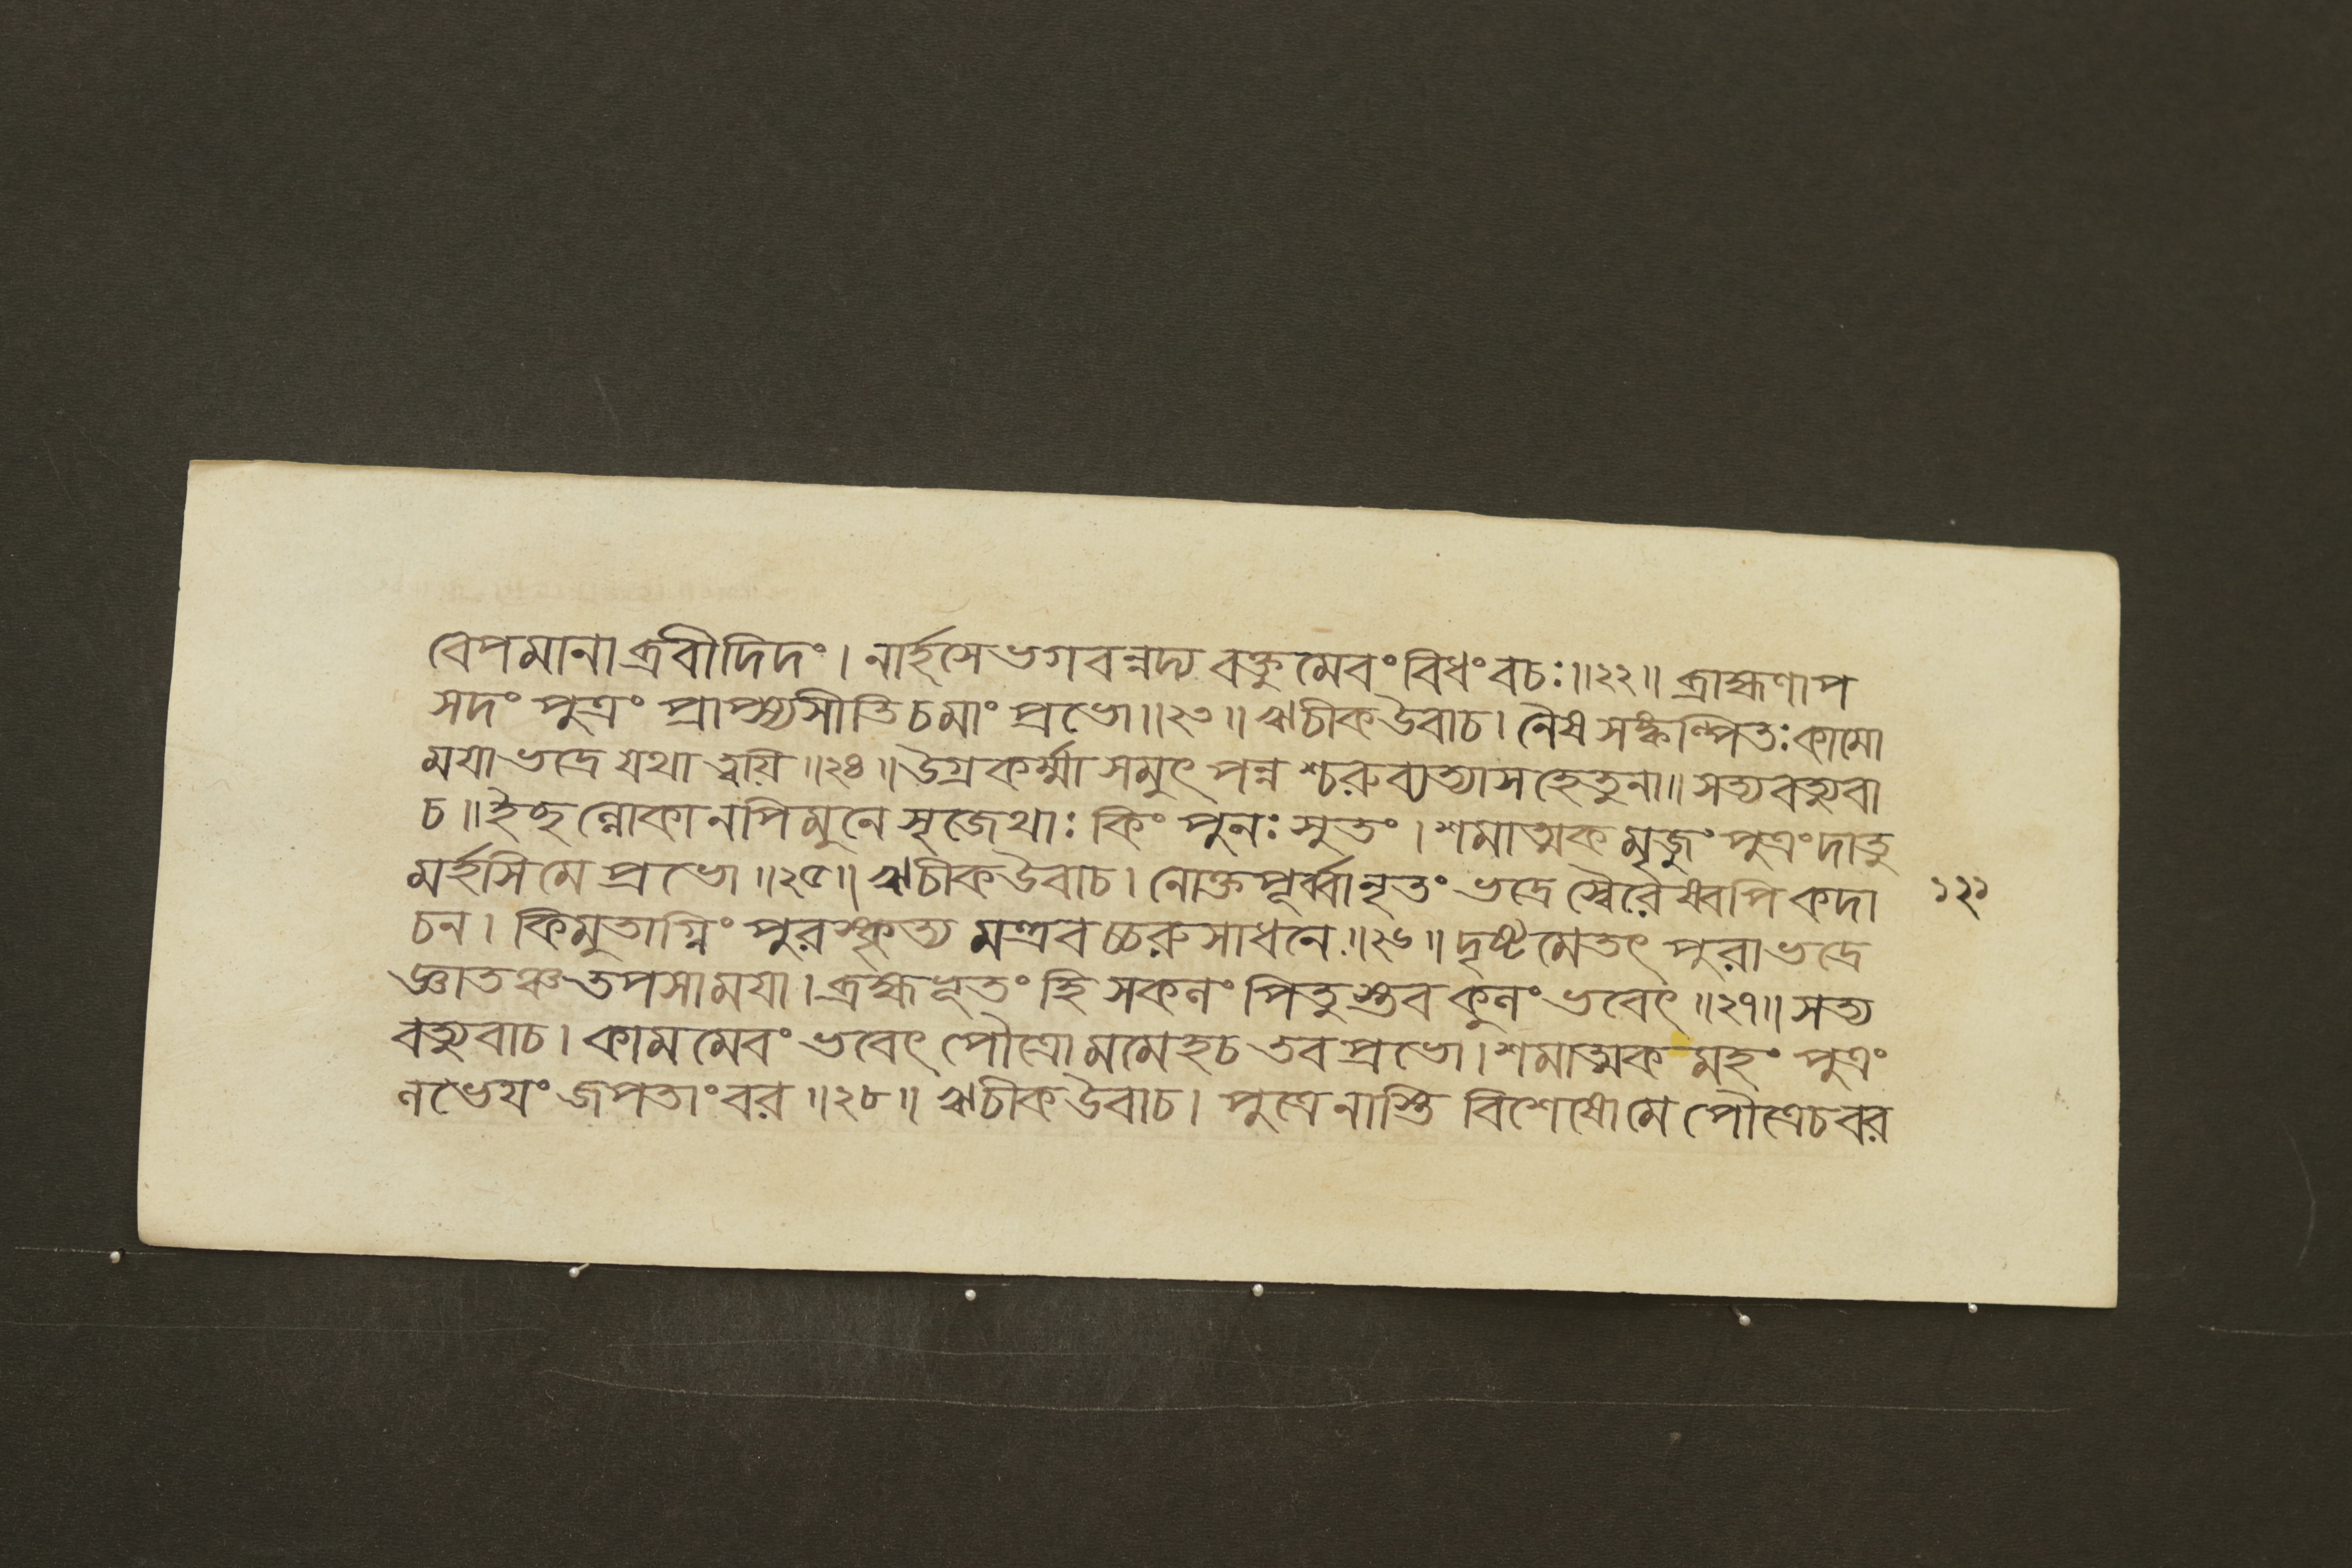 বেপমানাব্রবীদিদং। নার্হসে ভগবন্নদ্য বক্তুমেবংবিধং বচঃ॥২২॥ ব্রাহ্মণাপ
সদং পুত্রং প্রাপ্স্যসীতি চ মাং প্রভো॥২৩॥ ঋচীক উবাচ। নৈষ সঙ্কল্পিতঃ কামো
ময়া ভদ্রে যথা ত্বয়ি॥২৪॥ উগ্রকর্ম্মা সমুৎপন্নশ্চরুব্যত্যাসহেতুনা॥ সত্যবত্যুবা
চ॥ ইছল্লোকানপি মুনে সৃজেথাঃ কিং পুনঃ সুতং। শমাত্মকমৃজুং পুত্রং দাতু
মর্হসি মে প্রভো॥২৫॥ ঋচীক উবাচ। নোক্তপূর্ব্বানৃতং ভদ্রে স্বৈরেষ্বপি কদা
চন। কিমুতাগ্নিং পুরস্কৃত্য মন্ত্রবচ্চরুসাধনে॥২৬॥ দৃষ্টমেতৎ পুরা ভদ্রে
জ্ঞাতঞ্চ তপসা ময়া। ব্রহ্মভূতং হি সকলং পিতুস্তব কুলং ভবেৎ॥২৭॥ সত্য
বত্যুবাচ। কামমেবং ভবেৎ পৌত্রো মমেহ চ তব প্রভো। শমাত্মকমহং পুত্রং
লভেয়ং জপতাং বর॥২৮॥ ঋচীক উবাচ। পুত্রে নাস্তি বিশেষো মে পৌত্রে চ বর
১২১